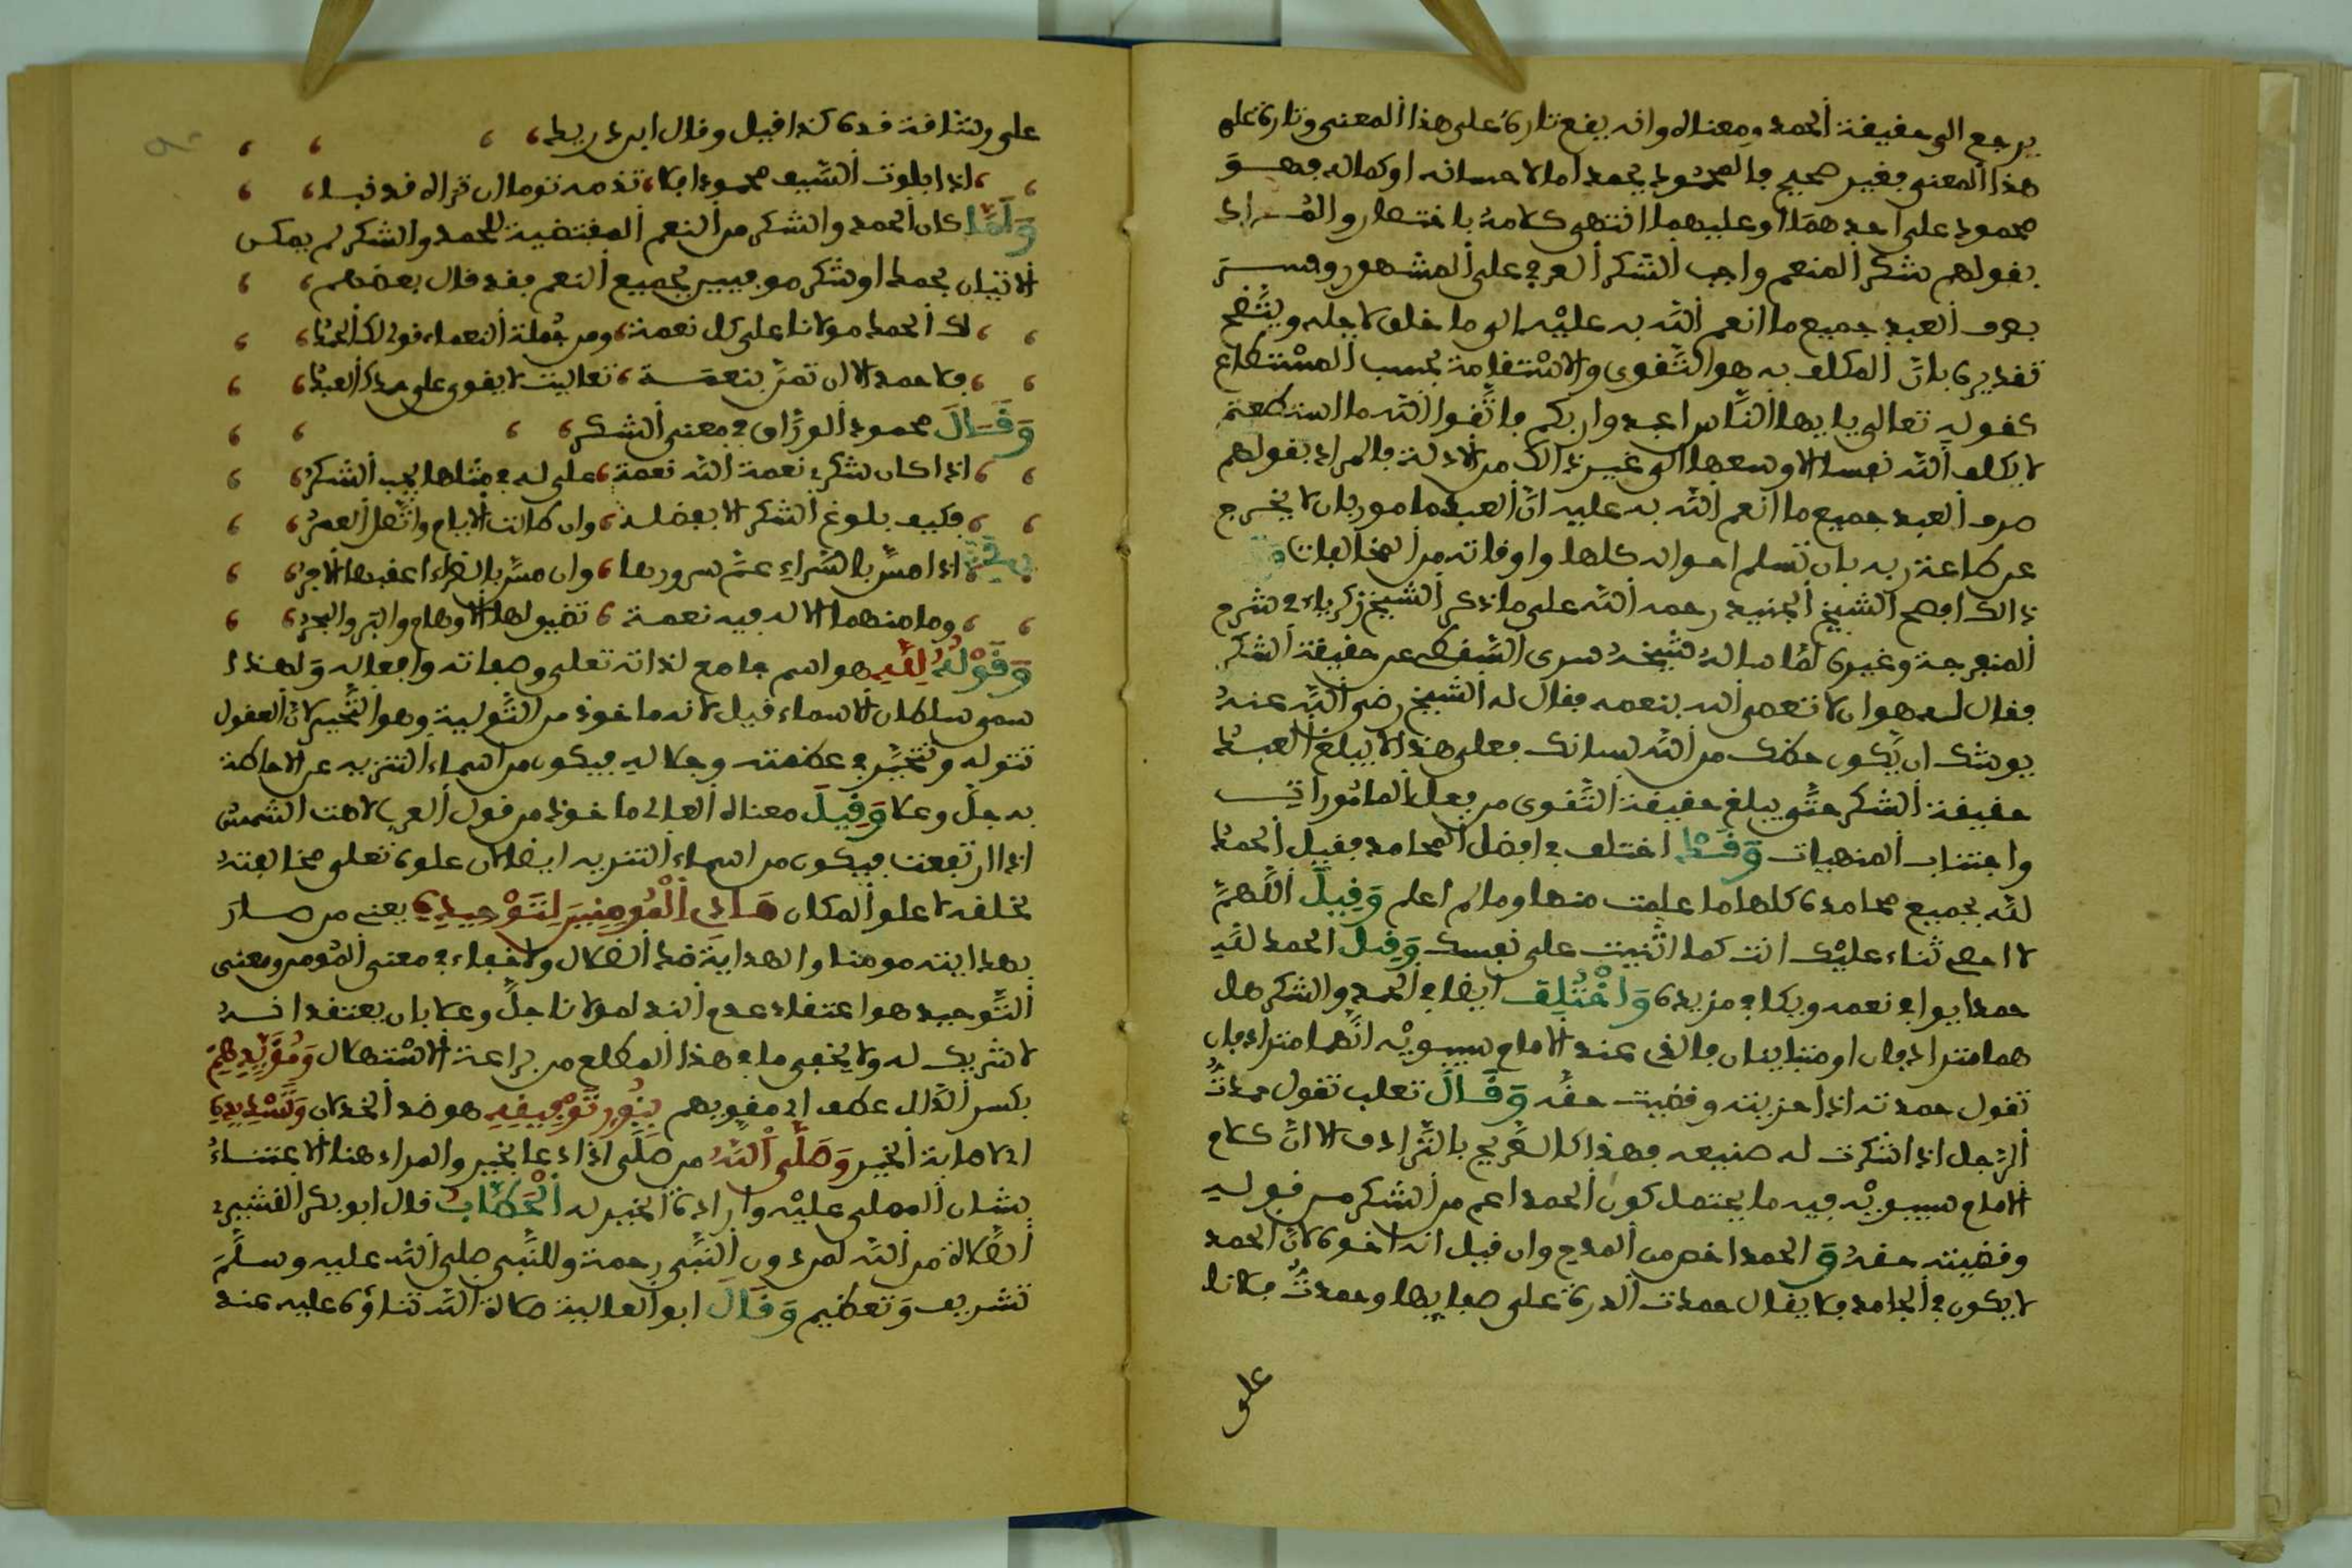 يرجع الى حقيقة الحمد ومعناه وانه يقع تارة على هذا المعنى وتارة على
هذا المعنى فغير صحيح فالمحمود يحمد اما لاحسانه او كماله فهو
محمود على احدهما او عليهما انتهى كلامه باختصار والمراد
بقولهم شكر المنعم واجب الشكر العرفي على المشهور وهو
صرف العبد جميع ما انعم الله به عليه الى ما خلق لاجله ويتضح
تقديره بان المكلف به هو التقوى والاستقامة بحسب المستطاع
كقوله تعالى يايها الناس اعبدوا ربكم فاتقوا الله ما استطعتم
لا يكلف الله نفسا الا وسعها الى غير ذالك من الادلة فالمراد بقولهم
صرف العبد جميع ما انعم الله به عليه ان العبد مامور بان لا يخرج
عن طاعة ربه بان تسلم احواله كلها واوقاته من المخالفات
ذالك افصح الشيخ الجنيد رحمه الله على ما ذكر الشيخ زكرياء في شرح
المنفرجة وغيره لما ساله شيخه سرى السقطى عن حقيقة الشكر
فقال له هو ان لا تعصى الله بنعمه فقال له الشيخ رضي الله عنه
يوشك ان يكون حظك من الله لسانك فعلى هذا لا يبلغ العبد
حقيقة الشكر حتى يبلغ حقيقة التقوى من فعل المامورات
واجتناب المنهيات وَقَدْ اختلف في افضل المحامد فقيل الحمد
لله بجميع محامده كلها ما علمت منها وما لم اعلم وَقِيلَ اللهم
لا احصى ثناء عليك انت كما اثنيت على نفسك وَقِيلَ الحمد لله
حمدا يوافي نعمه ويكافي مزيده وَاخْتُلِفَ ايضا في الحمد والشكر هل
هما مترادفان او متباينان فالذى عند الامام سيبويه انهما مترادفان
تقول حمدته اذا جزيته وقضيت حقه وَقَالَ ثعلب تقول حمدت
الرجل اذا شكرت له صنيعه فهذا كالصريح بالترادف الا ان كلام
الامام سيبويه فيه ما يحتمل كون الحمد اعم من الشكر من قوله
وقضيته حقه وَ الحمد اخص من المدح وان قيل انه اخوه لان الحمد
لا يكون في الجامد فلا يقال حمدت الدرة على صفايها وحمدت فلانا
على
على رشاقة قده كذا قيل وقال ابن دريد
اذا بلوت السيف محمودا فلا تذمه يوما ان تراه قد نبا
وَلَمَّا كان الحمد والشكر من النعم المقتضية للحمد والشكر لم يمكن
الاتيان بحمد او شكر موفيين بجميع النعم فقد قال بعضهم
لك الحمد مولانا على كل نعمة ومن جملة النعماء قولى لك الحمد
فلا حمد الا ان تمن بنعمة تعاليت لا يقوى على حمدك العبد
وَقَالَ محمود الوراق في معنى الشكر
اذا كان شكرى نعمة الله نعمة على له في مثلها يجب الشكر
فكيف بلوغ الشكر الا بفضله وان طالت الايام واتصل العمر
اذا مس بالسراء عم سرورها وان مس بالضراء اعقبها الاجر
وما منهما الا له فيه نعمة تضيق لها الاوهام والبر والبحر
وَقَوْلُهُ لِلَّهِ هو اسم جامع لذاته تعلى وصفاته وافعاله ولهذا
سمى سلطان الاسماء قيل لانه ماخوذ من التولية وهو التحير لان العقول
تتوله وتتحير في عظمته وجلاله فيكون من اسماء التنزيه عن الاحاطة
به جل وعلا وَقِيلَ معناه العالى ماخوذ من قول العرب لاهت الشمس
اذا ارتفعت فيكون من اسماء التنزيه ايضا لان علوه تعلى مخالفته
لخلقه لا علو المكان هَادِى الْمُومِنِينَ لِتَوْحِيدِهِ يعنى من صار
بهدايته مومنا والهداية ضد الضلال ولا خفاء في معنى المومن ومعنى
التوحيد هو اعتقاد عدم الند لمولانا جل وعلا بان يعتقد انه
لا شريك له ولا يخفى ما في هذا المطلع من براعة الاستهلال وَمُؤَيِّدِهِمْ
بكسر الدال عطف اى مقويهم بِنُورِ تَوْفِيقِهِ هو ضد الخذلان وَتَسْدِيدِهِ
اى لاصابة الخير وَصَلَّى اللهُ من صَلَّى اذا دعا بخير والمراد هنا الاعتناء
بشان المصلى عليه وارادة الخير له الْحَطَّابُ قال ابو بكر القشيرى
الصلاة من الله لمن دون النبى رحمة وللنبى صلى الله عليه وسلم
تشريف وتعظيم وَقَالَ ابو العالية صلاة الله ثناؤه عليه عند